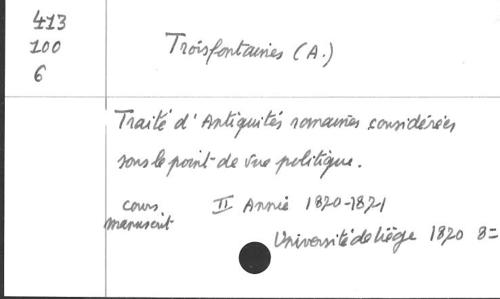 413
100
6
Troisfontaines (A.)
Traité d'Antiquités romaines considérées
sous le point de vue politique.
cours II Année 1870-1871
manuscrit
Université de Liège 1870 8=